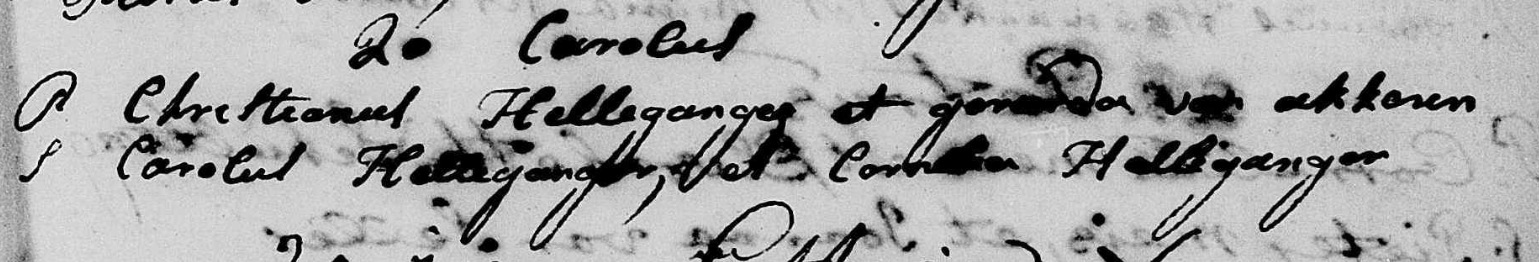 20 Carolus
P Christianus Helleganger et gerarda van akkeren
S Carolus Helleganger, et Cornelia Helleganger